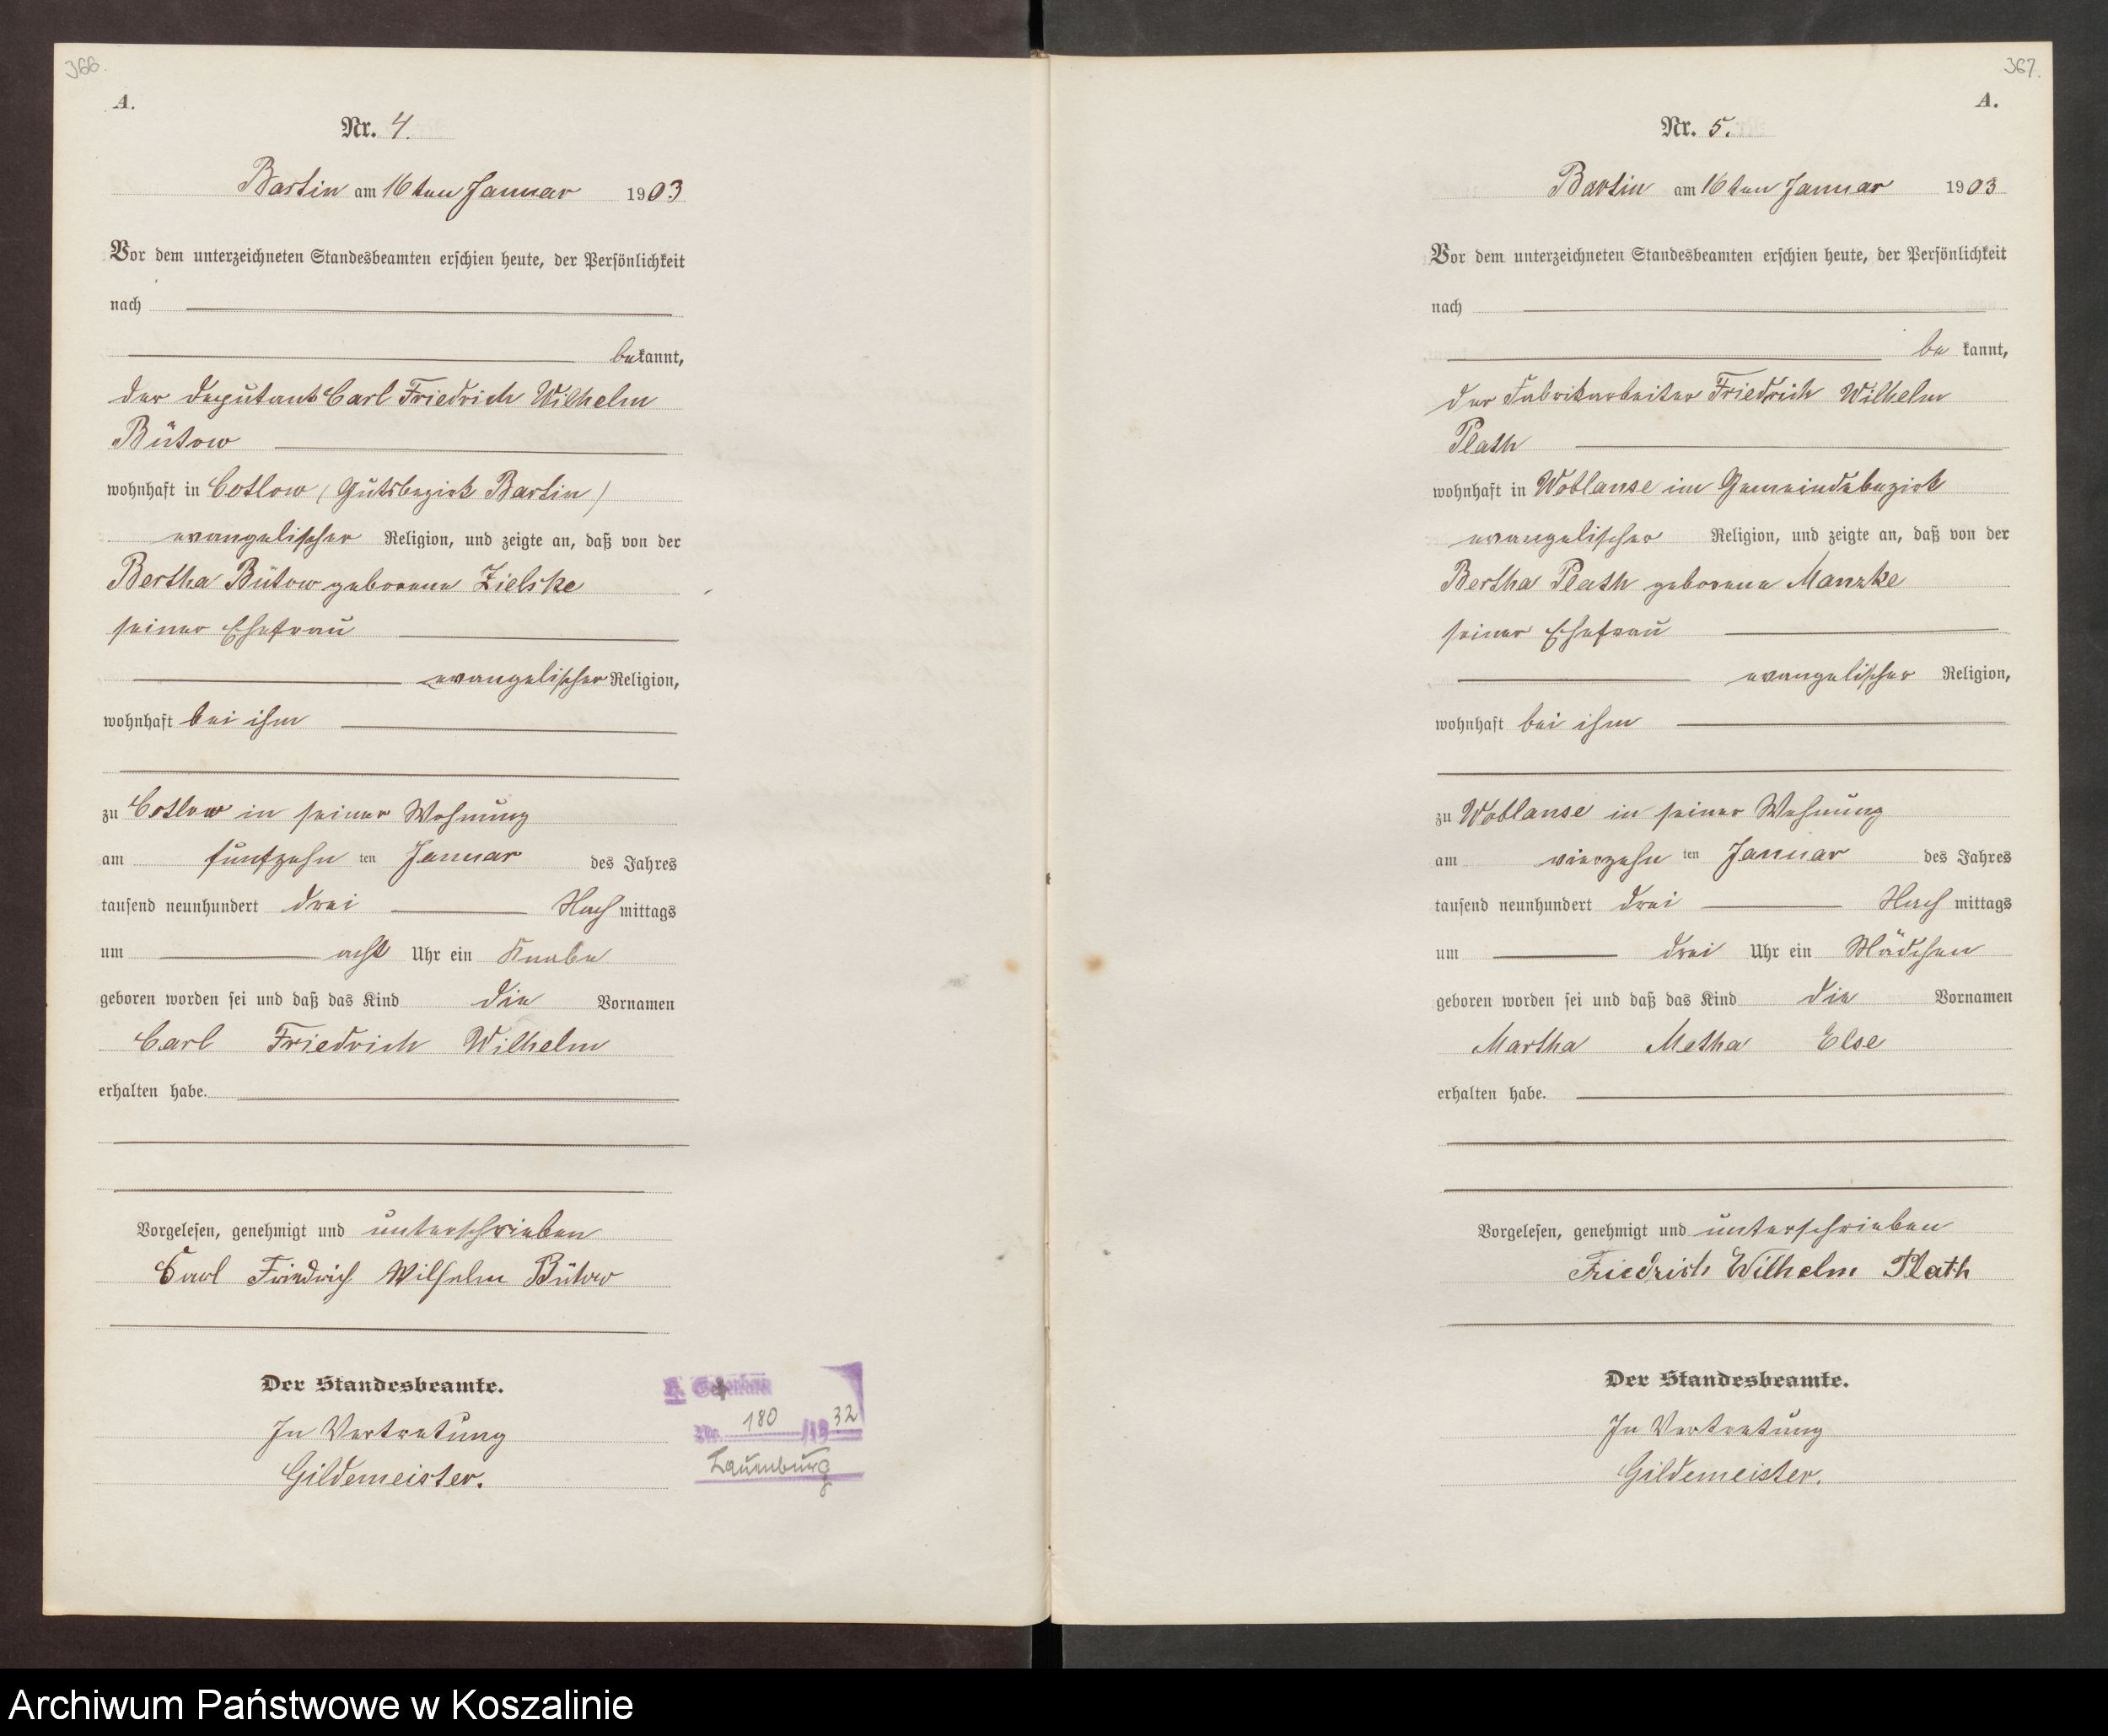 366.
A.
Nr. 4.
Bartin am 16ten Januar 1903
Vor dem unterzeichneten Standesbeamten erschien heute, der Persönlichkeit
nach
bekannt,
der Deputant Carl Friedrich Wilhelm
Bütow
wohnhaft in Cotlow (Gutsbezirk Bartin)
evangelischer Religion, und zeigte an, daß von der
Bertha Bütow geborene Zielske
seiner Ehefrau
evangelischer Religion,
wohnhaft bei ihm
zu Cotlow in seiner Wohnung
am fünfzehn ten Januar des Jahres
tausend neunhundert drei Nach mittags
um acht Uhr ein Knabe
geboren worden sei und daß das Kind die Vornamen
Carl Friedrich Wilhelm
erhalten habe.
Vorgelesen, genehmigt und unterschrieben
Carl Friedrich Wilhelm Bütow
Der Standesbeamte.
In Vertretung
Gildemeister.
Nr. 180 /19 32
Lauenburg
367.
A.
Nr. 5.
Bartin am 16ten Januar 1903
Vor dem unterzeichneten Standesbeamten erschien heute, der Persönlichkeit
nach
be kannt,
der Fabrikarbeiter Friedrich Wilhelm
Plath
wohnhaft in Woblanse im Gemeindebezirk
evangelischer Religion, und zeigte an, daß von der
Bertha Plath geborene Manzke
seiner Ehefrau
evangelischer Religion,
wohnhaft bei ihm
zu Woblanse in seiner Wohnung
am vierzehn ten Januar des Jahres
tausend neunhundert drei Nach mittags
um drei Uhr ein Mädchen
geboren worden sei und daß das Kind die Vornamen
Martha Metha Else
erhalten habe.
Vorgelesen, genehmigt und unterschrieben
Friedrich Wilhelm Plath
Der Standesbeamte.
In Vertretung
Gildemeister.
Archiwum Państwowe w Koszalinie